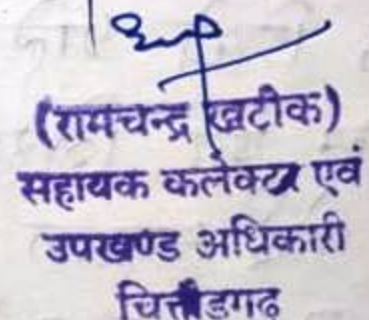 (रामचन्द्र खटीक)
सहायक कलेक्टर एवं
उपखण्ड अधिकारी
चित्तौडगढ